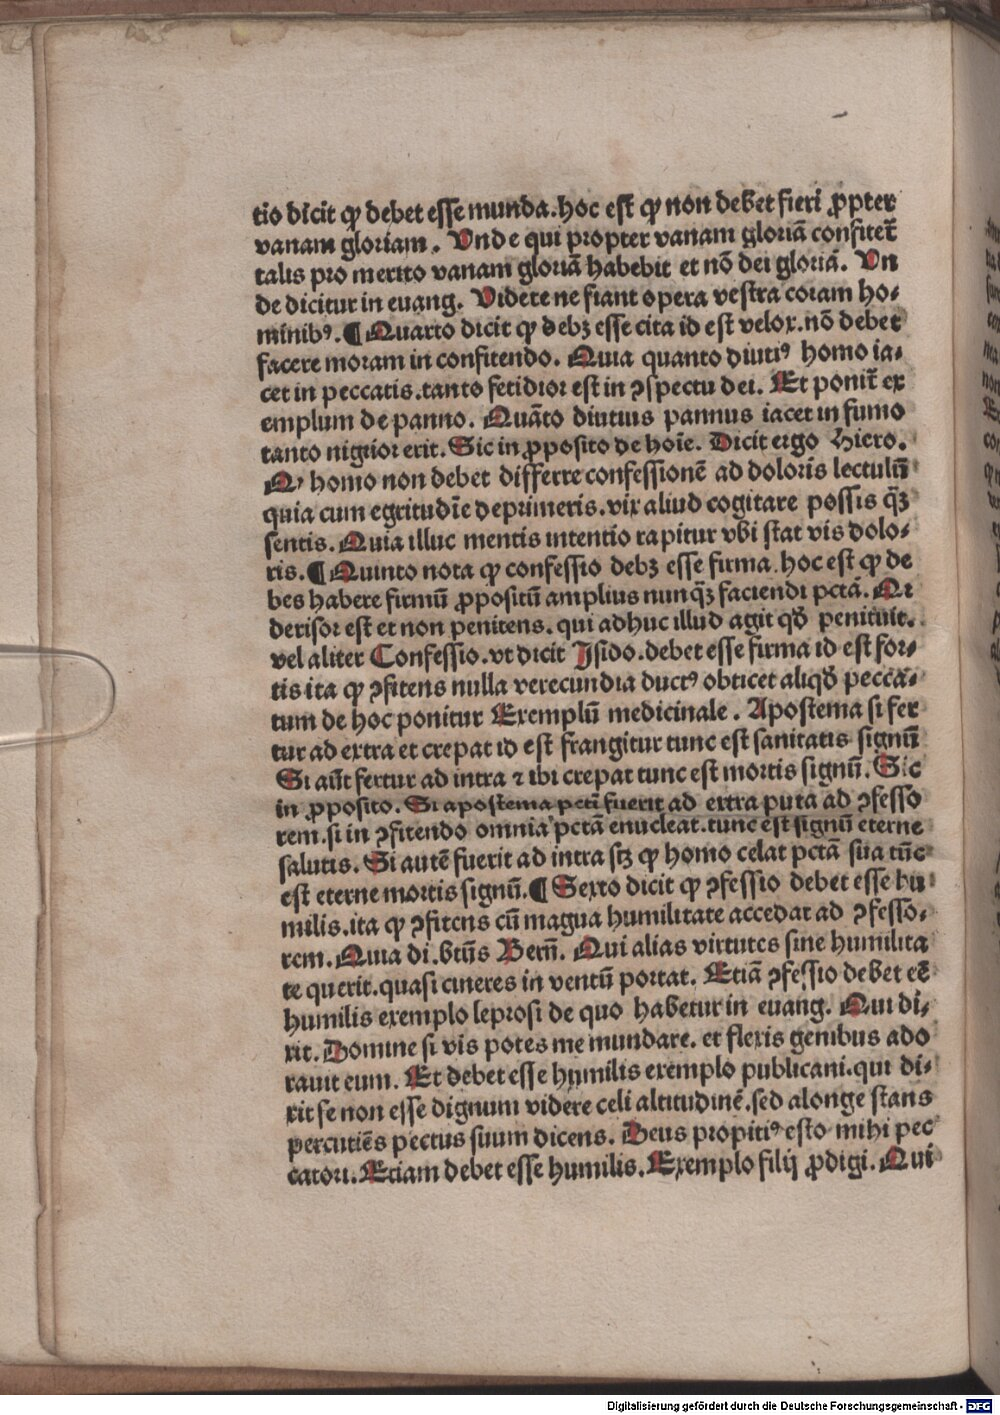 tio dicit ꝙ debet esse munda. hoc est ꝙ non debet fieri ꝓpter
vanam gloriam. Unde qui propter vanam gloriā confitet᷑
talis pro merito vanam gloriā habebit et nō dei gloriā. Un
de dicitur in euang. Videte ne fiant opera vestra coram ho⸗
minibꝰ. ¶ Quarto dicit ꝙ debꝫ esse cita id est velox. nō debet
facere moram in confitendo. Quia quanto diutiꝰ homo ia⸗
cet in peccatis. tanto fetidior est in ꝯspectu dei. Et ponit᷑ ex
emplum de panno. Quāto diutius pannus iacet in fumo
tanto nigrior erit. Sic in ꝓposito de hoīe. Dicit ergo Hiero.
Ꝙ homo non debet differre confessionē ad doloris lectulū
quia cum egritudīe deprimeris. vix aliud cogitare possis q̄ꝫ
sentis. Quia illuc mentis intentio rapitur vbi stat vis dolo⸗
ris. ¶ Quinto nota ꝙ confessio debꝫ esse firma. hoc est ꝙ de
bes habere firmū ꝓpositū amplius nunq̄ꝫ faciendi pctā. Nā
derisor est et non penitens. qui adhuc illud agit qd̄ penituit.
vel aliter Confessio. vt dicit Isido. debet esse firma id est for⸗
tis ita ꝙ ꝯfitens nulla verecundia ductꝰ obticet aliqd̄ pecca⸗
tum de hoc ponitur Exemplū medicinale. Apostema si fer
tur ad extra et crepat id est frangitur tunc est sanitatis signū
Si aūt fertur ad intra ⁊ ibi crepat tunc est mortis signū. Sic
in ꝓposito. Si apostema pcti fuerit ad extra puta ad ꝯfesso
rem. si in ꝯfitendo omnia pctā enucleat. tunc est signū eterne
salutis. Si autē fuerit ad intra sꝫ ꝙ homo celat pctā sua tūc
est eterne mortis signū. ¶ Sexto dicit ꝙ ꝯfessio debet esse hu
milis. ita ꝙ ꝯfitens cū magna humilitate accedat ad ꝯfesso⸗
rem. Quia di. btūs Bern̄. Qui alias virtutes sine humilita
te querit. quasi cineres in ventū portat. Etiā ꝯfessio debet eē
humilis exemplo leprosi de quo habetur in euang. Qui di⸗
xit. Domine si vis potes me mundare. et flexis genibus ado
rauit eum. Et debet esse humilis exemplo publicani. qui di⸗
xit se non esse dignum videre celi altitudinē. sed alonge stans
percutiēs pectus suum dicens. Deus propitiꝰ esto mihi pec
catori. Etiam debet esse humilis. Exemplo filij ꝓdigi. Qui
Digitalisierung gefördert durch die Deutsche Forschungsgemeinschaft - DFG